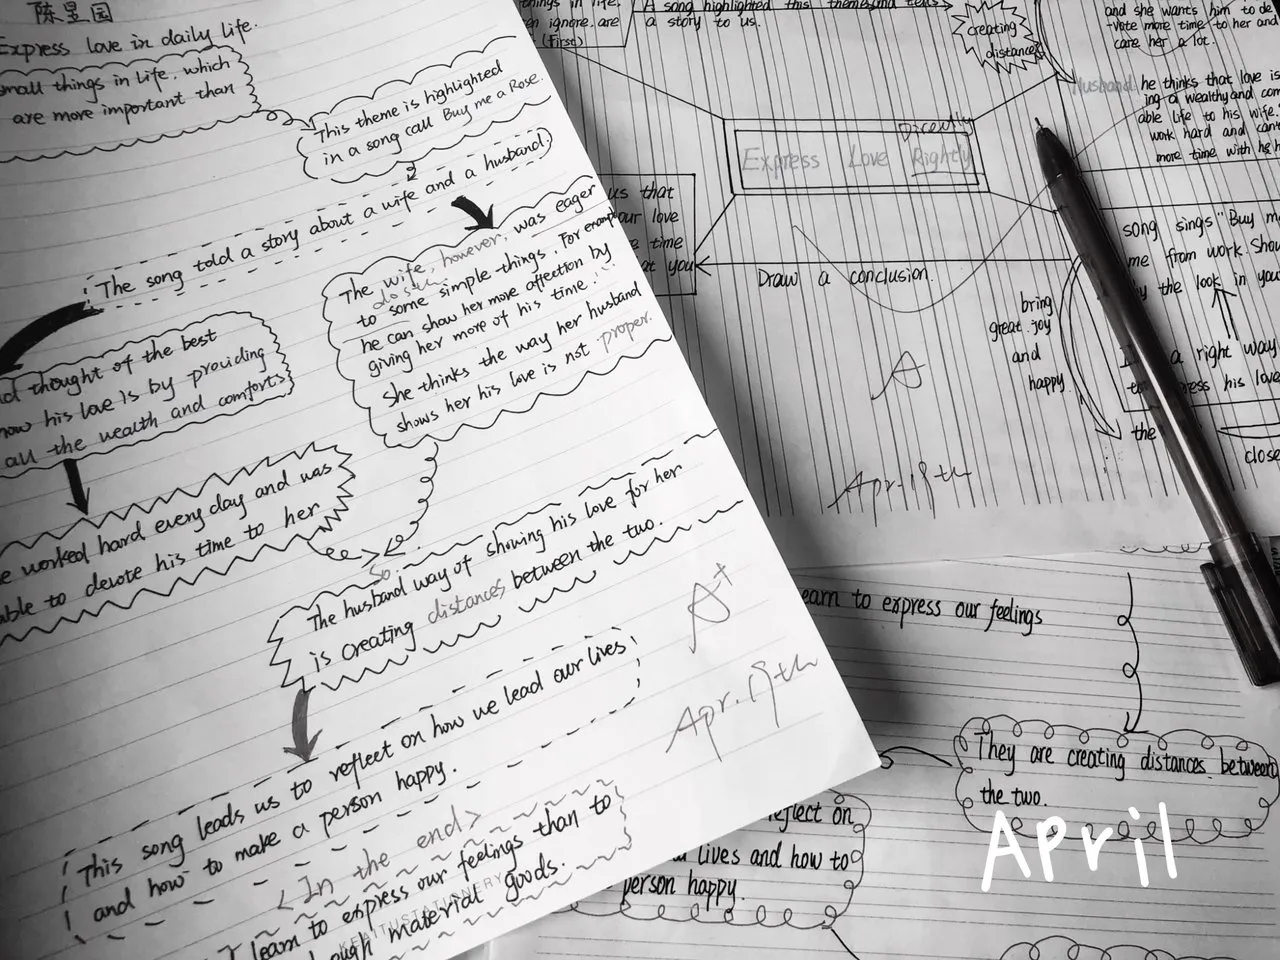 陈昱国
Express love in daily life.
small things in life, which
are more important than
This theme is highlighted
in a song call Buy me a Rose.
The song told a story about a wife and a husband.
The wife, however, was eager
to some simple things. For example
he can show her more affection by
giving her more of his time.
She thinks the way her husband
shows her his love is not proper.
thought of the best
how his love is by providing
all the wealth and comforts
worked hard every day and was
able to devote his time to her
So
The husband way of showing his love for her
is creating distances between the two.
This song leads us to reflect on how we lead our lives
and how to make a person happy.
<In the end>
learn to express our feelings than to
material goods.
KEAITUSTATIONERY
A+
Apr. 18th
things in life.
ignore. are
(First)
A song highlighted this theme and tells
a story to us.
creating
distances
and she wants him to de
-vote more time to her and
care her a lot.
Husband
he thinks that love is
ing a wealthy and com
able life to his wife.
work hard and cant
more time with he h
Directly
Express Love Rightly
us that
our love
time
at you
Draw a conclusion.
bring
great joy
and
happy.
song sings "Buy me
me from work. Show
by the look in you
a right way
his love
the
close
A
Apr. 18th
earn to express our feelings
They are creating distances between
the two.
reflect on
lives and how to
person happy.
April